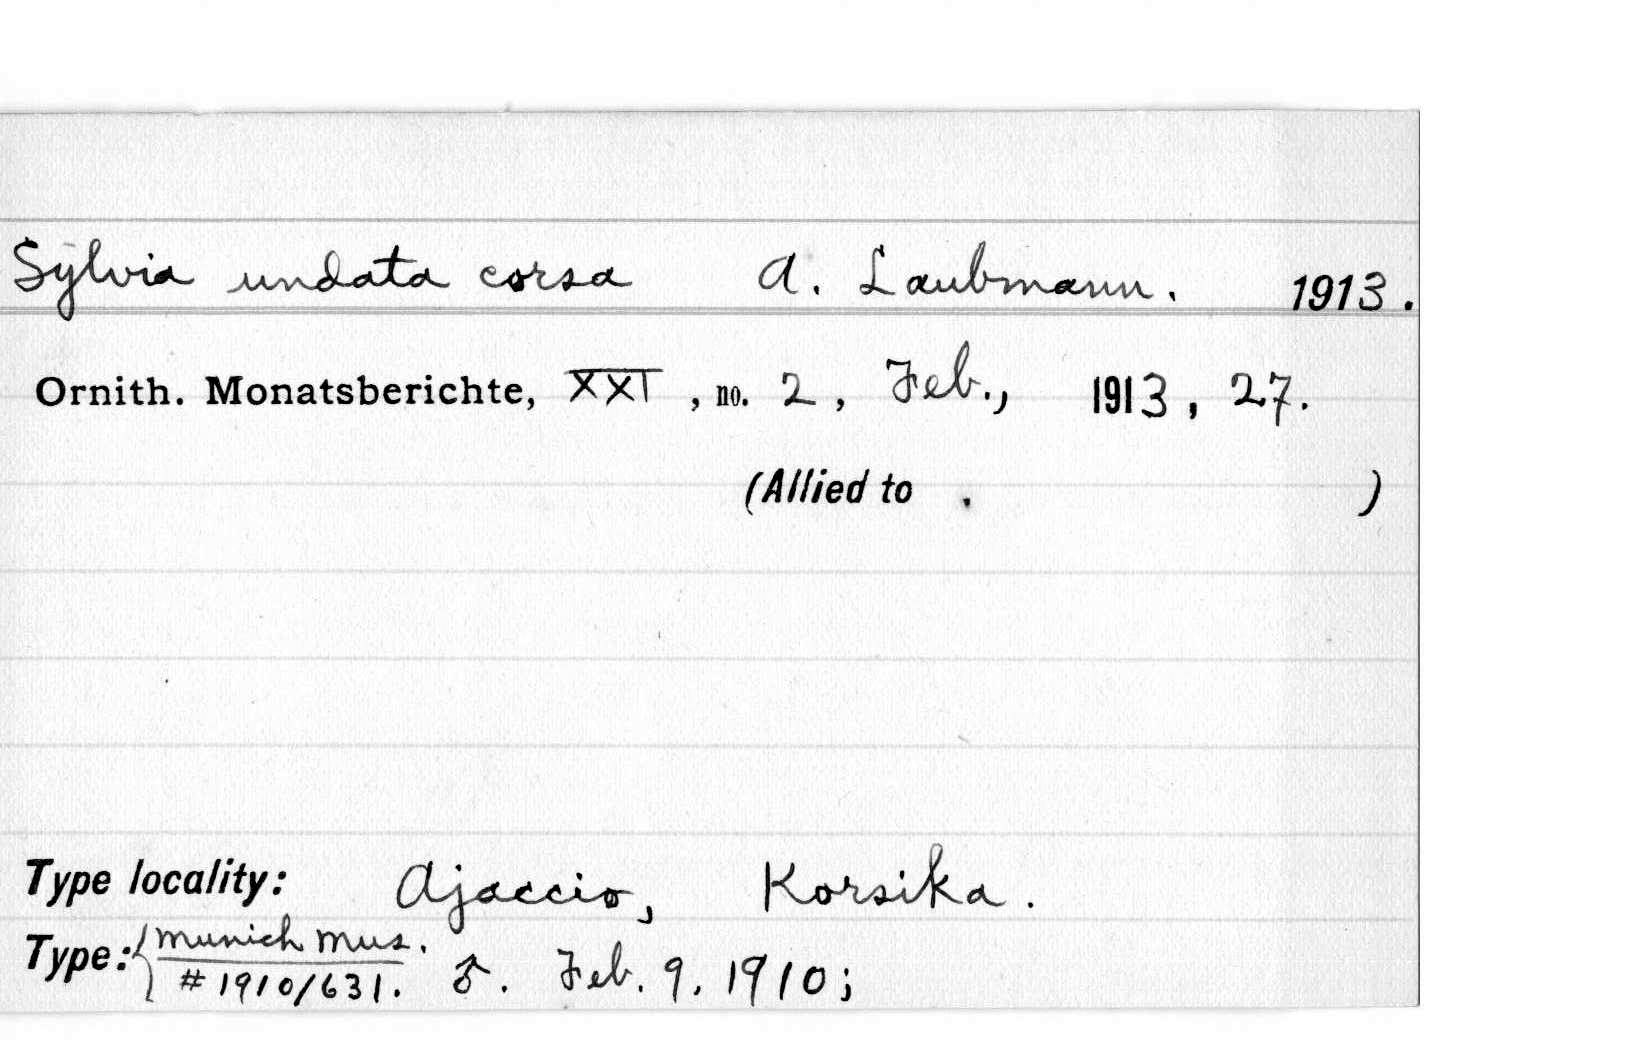 Sylvia undata corsa A. Laubmann. 1913.
Ornith. Monatsberichte, XXI, no. 2, Feb., 1913, 27.
(Allied to . )
Type locality: Ajaccio, Korsika.
Type: { Munich Mus.
# 1910/631. ♂. Feb. 9, 1910;